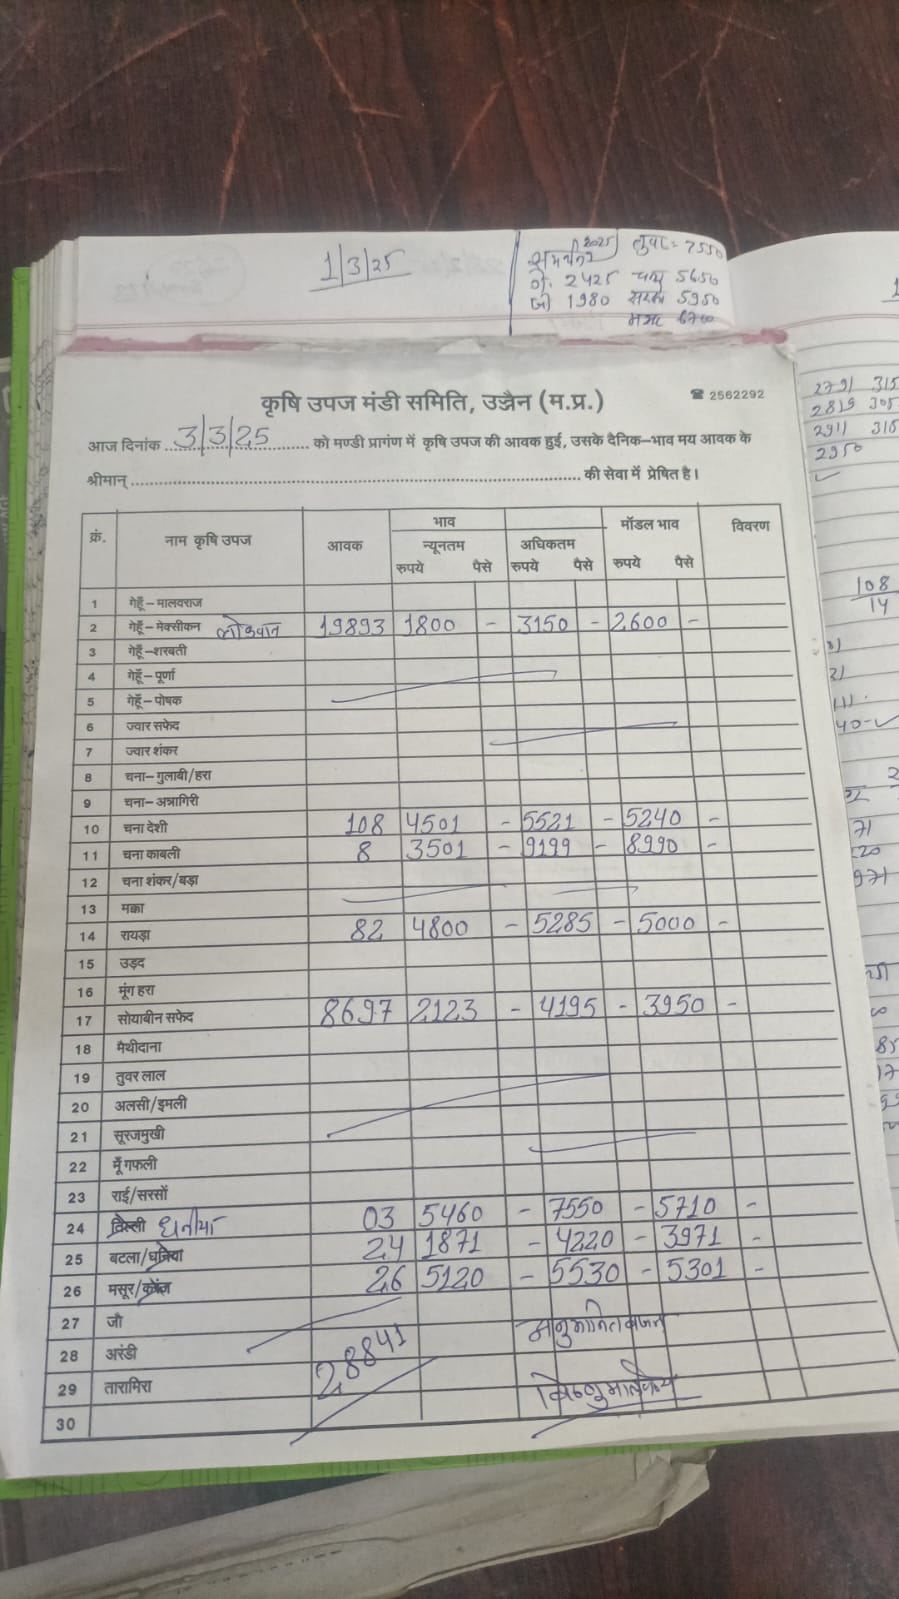 1/3/25
समर्थन 2025 तुवर = 7550
गे. 2425 चना 5650
जौ 1980 सरसों 5950
मसूर 6700
2791 315
2819 305
2911 316
2950
108
14
कृषि उपज मंडी समिति, उज्जैन (म.प्र.) ☎ 2562292
आज दिनांक 3/3/25 को मण्डी प्रागंण में कृषि उपज की आवक हुई, उसके दैनिक-भाव मय आवक के
श्रीमान् की सेवा में प्रेषित है।
क्रं. नाम कृषि उपज आवक भाव मॉडल भाव विवरण
न्यूनतम अधिकतम
रुपये पैसे रुपये पैसे रुपये पैसे
1 गेहूँ-मालवराज
2 गेहूँ-मेक्सीकन लोकवान 19893 1800 - 3150 - 2600 -
3 गेहूँ-शरबती
4 गेहूँ-पूर्णा
5 गेहूँ-पोषक
6 ज्वार सफेद
7 ज्वार शंकर
8 चना-गुलाबी/हरा
9 चना-अन्नागिरी
10 चना देशी 108 4501 - 5521 - 5240 -
11 चना काबली 8 3501 - 9199 - 8990 -
12 चना शंकर/बड़ा
13 मक्का
14 रायड़ा 82 4800 - 5285 - 5000 -
15 उड़द
16 मूंग हरा
17 सोयाबीन सफेद 8697 2123 - 4195 - 3950 -
18 मैथीदाना
19 तुवर लाल
20 अलसी/इमली
21 सूरजमुखी
22 मूँगफली
23 राई/सरसों
24 तिल्ली धनीया 03 5460 - 7550 - 5710 -
25 बटला/धनिया 24 1871 - 4220 - 3971 -
26 मसूर/करंज 26 5120 - 5530 - 5301 -
27 जौ
28 अरंडी
29 तारामिरा
30
28841